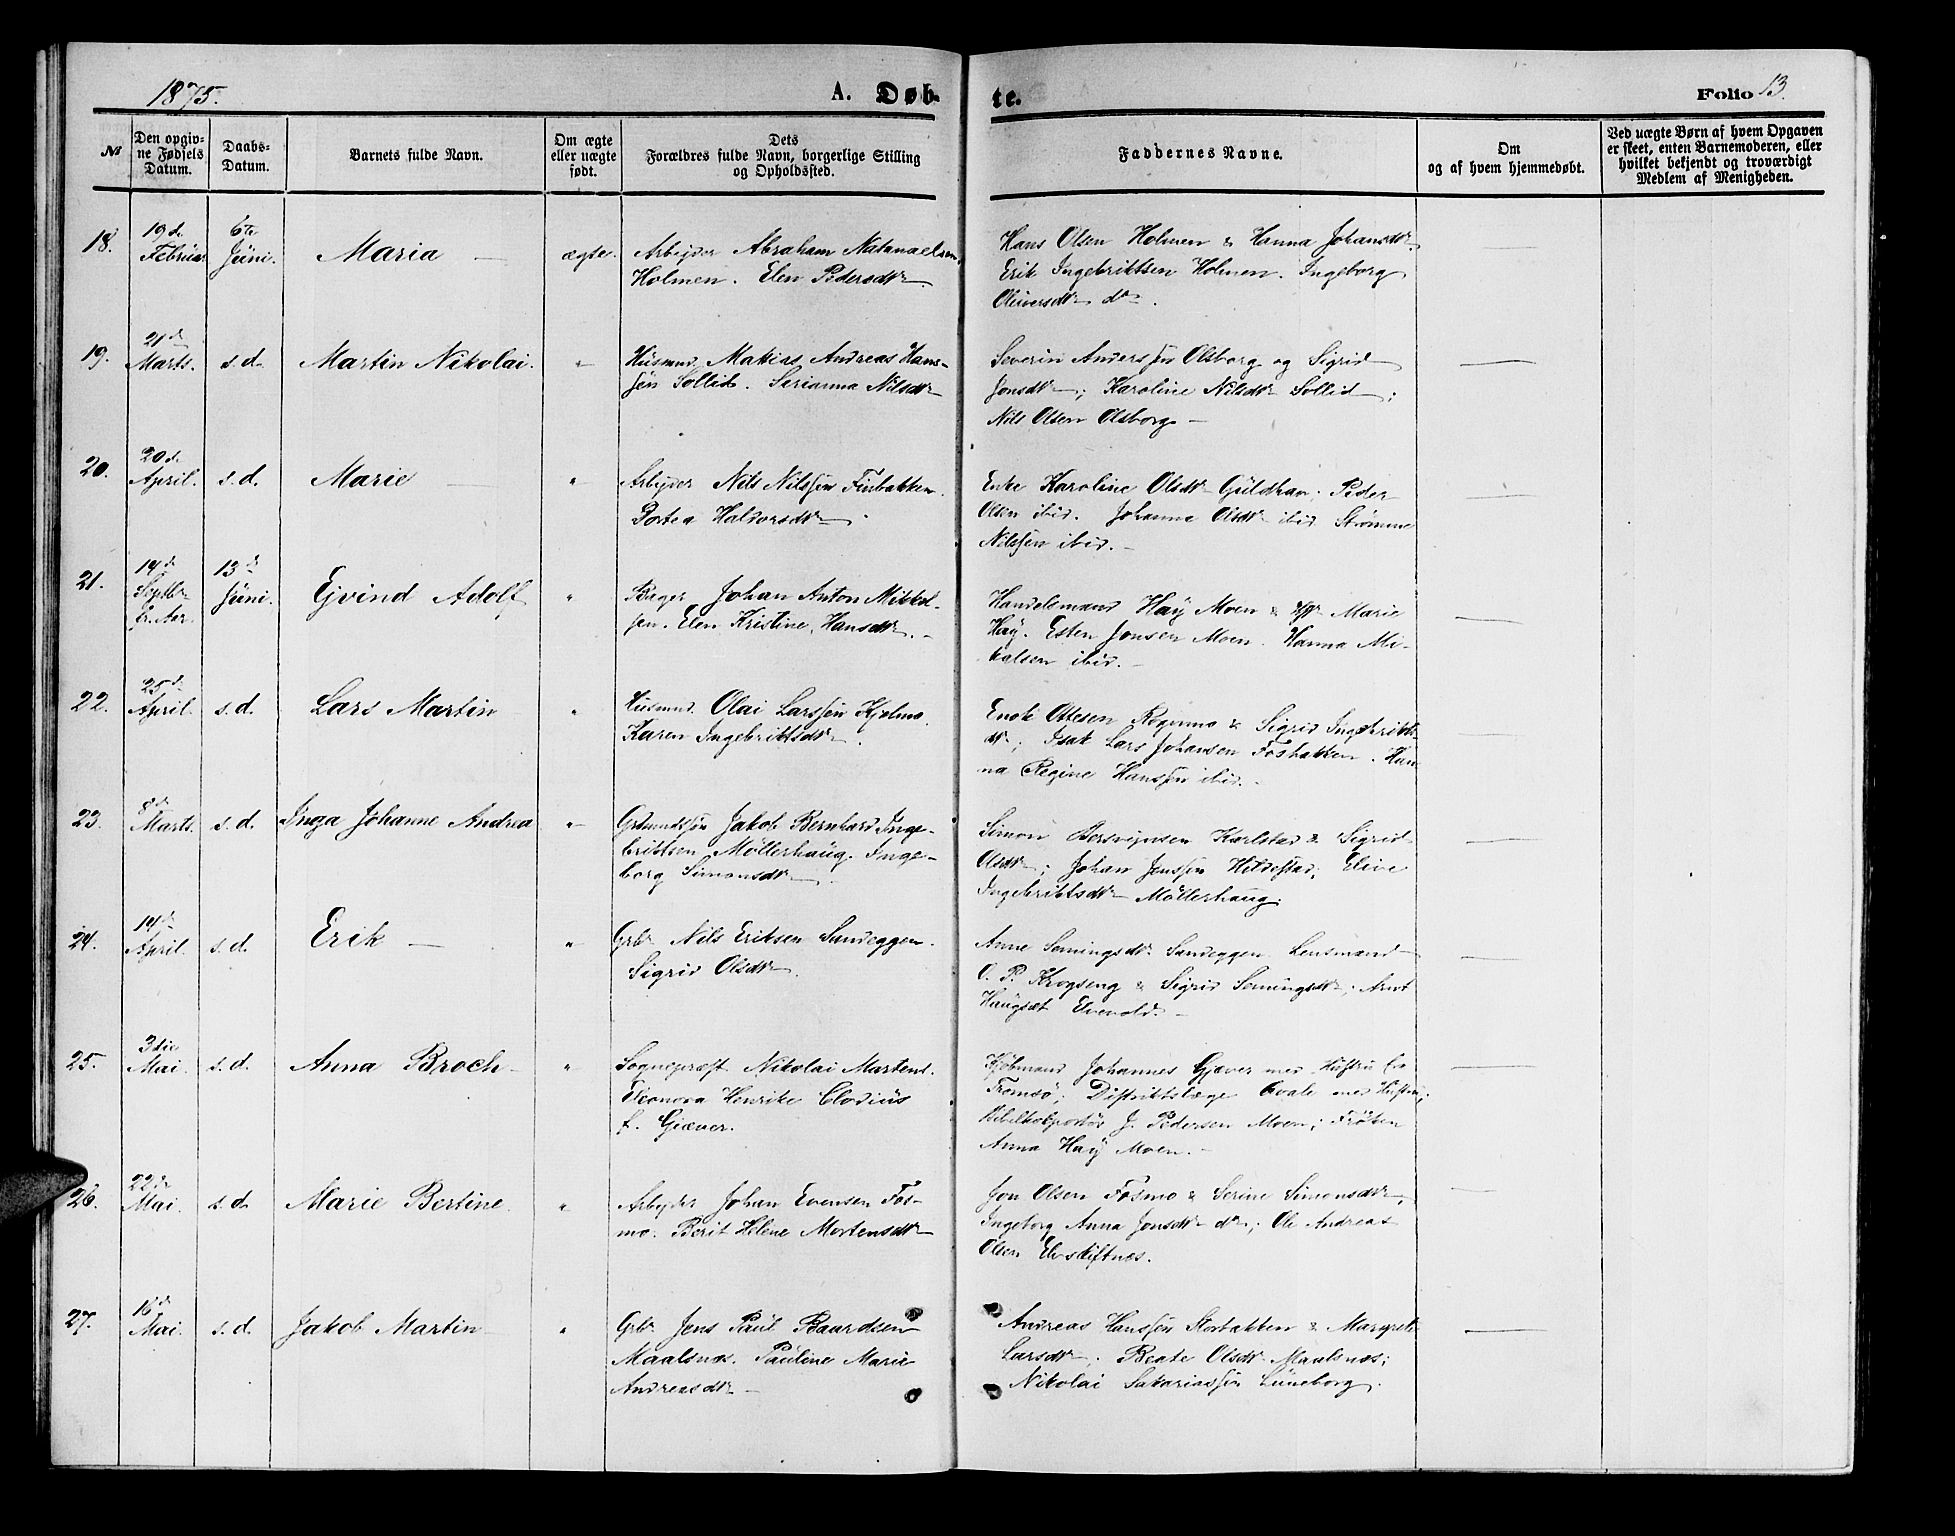 1875.
A. Døb-
te.
Folio 13.
№
Den opgiv-
ne Fødsels
Datum.
Daabs-
Datum.
Barnets fulde Navn.
Om ægte
eller uægte
født.
Dets
Forældres fulde Navn, borgerlige Stilling
og Opholdssted.
Faddernes Navne.
Om
og af hvem hjemmedøbt.
Ved uægte Børn af hvem Opgaven
er skeet, enten Barnemoderen, eller
hvilket bekjendt og troværdigt
Medlem af Menigheden.
18.
19de
Februar
6te
Juni.
Maria —
ægte.
Arbejder Abraham Natanaelsen
Holmen. Elen Pedersdtr
Hans Olsen Holmen & Hanna Johansdtr.
Erik Ingebriktsen Holmen. Ingeborg
Oliversdtr do.
19.
21de
Marts.
s.d.
Martin Nikolai.
"
Husmnd Matias Andreas Hans-
sen Sollid. Serianna Nilsdtr
Severin Anderssen Olsborg og Sigrid
Jonsdtr; Karoline Nilsdtr Sollid;
Nils Olsen Olsborg —
20.
20de
April.
s.d.
Marie —
"
Arbejder Nils Nilssen Finbakken.
Dortea Haldorsdtr.
Enke Karoline Olsdtr Guldhav; Peder
Olsen ibid. Johanna Olsdtr ibid. Strømme
Nilssen ibid. —
21.
14de
Septbr
f. Aar.
13de
Juni.
Ejvind Adolf
"
Bager Johan Anton Mikkel-
sen. Elen Kristine Hansdtr. —
Handelsmand Haÿ Moen & Marie
Haÿ. Esten Jonsen Moen. Hanna Mi-
kalsen ibid. —
22.
25de
April.
s.d.
Lars Martin
"
Husmnd. Olai Larssen Kjølmo.
Karen Ingebriktsdtr.
Enok Ottesen Rognmo & Sigrid Ingebrikts
dtr; Isak Lars Johansen Fosbakken. Han
na Regine Hanssen ibid. —
23.
8de
Marts.
s.d.
Inga Johanne Andrea
"
Grdmandssøn Jakob Bernhard Inge-
briktsen Møllerhaug. Inge-
borg Simonsdtr.
Simon Karlstad & Sigrid
Olsdtr; Johan Jenssen Hildestad; Eline
Ingebriktsdtr Møllerhaug.
24.
14de
April.
s.d.
Erik —
"
Grbr Nils Eriksen Sandeggen.
Sigrid Olsdtr.
Anne Semingsdtr Sandeggen Lensmand
O. P. Krogseng & Sigrid Semingsdtr; Arnt
Haugset Elvevold. —
25.
3die
Mai.
s.d.
Anna Broch
"
Sogneprest Nikolai Martens.
Eleonora Henrike Clodius
f. Giæver.
Kjøbmand Johannes Giæver med Hustru fra
Tromsø; Distriktslæge Qvale med Hustru;
Bibelkolportør J. Pedersen Moen; Frøken
Anna Haÿ Moen. —
26.
22de
Mai.
s.d.
Marie Bertine.
"
Arbejder Johan Evensen Fos-
mo. Berit Helene Mortensdtr
Jon Olsen Fosmo & Serine Simonsdtr,
Ingeborg Anna Jonsdtr do; Ole Andreas
Olsen Elvskiftnes.
27.
16de
Mai.
s.d.
Jakob Martin
"
Grbr Jens Paul Baardsen
Maalsnes. Pauline Marie
Andreasdtr —
Andreas Hanssen Storbakken & Margrete
Larsdtr; Beate Olsdtr Maalsnes;
Nikolai Sakariassen Luneborg.